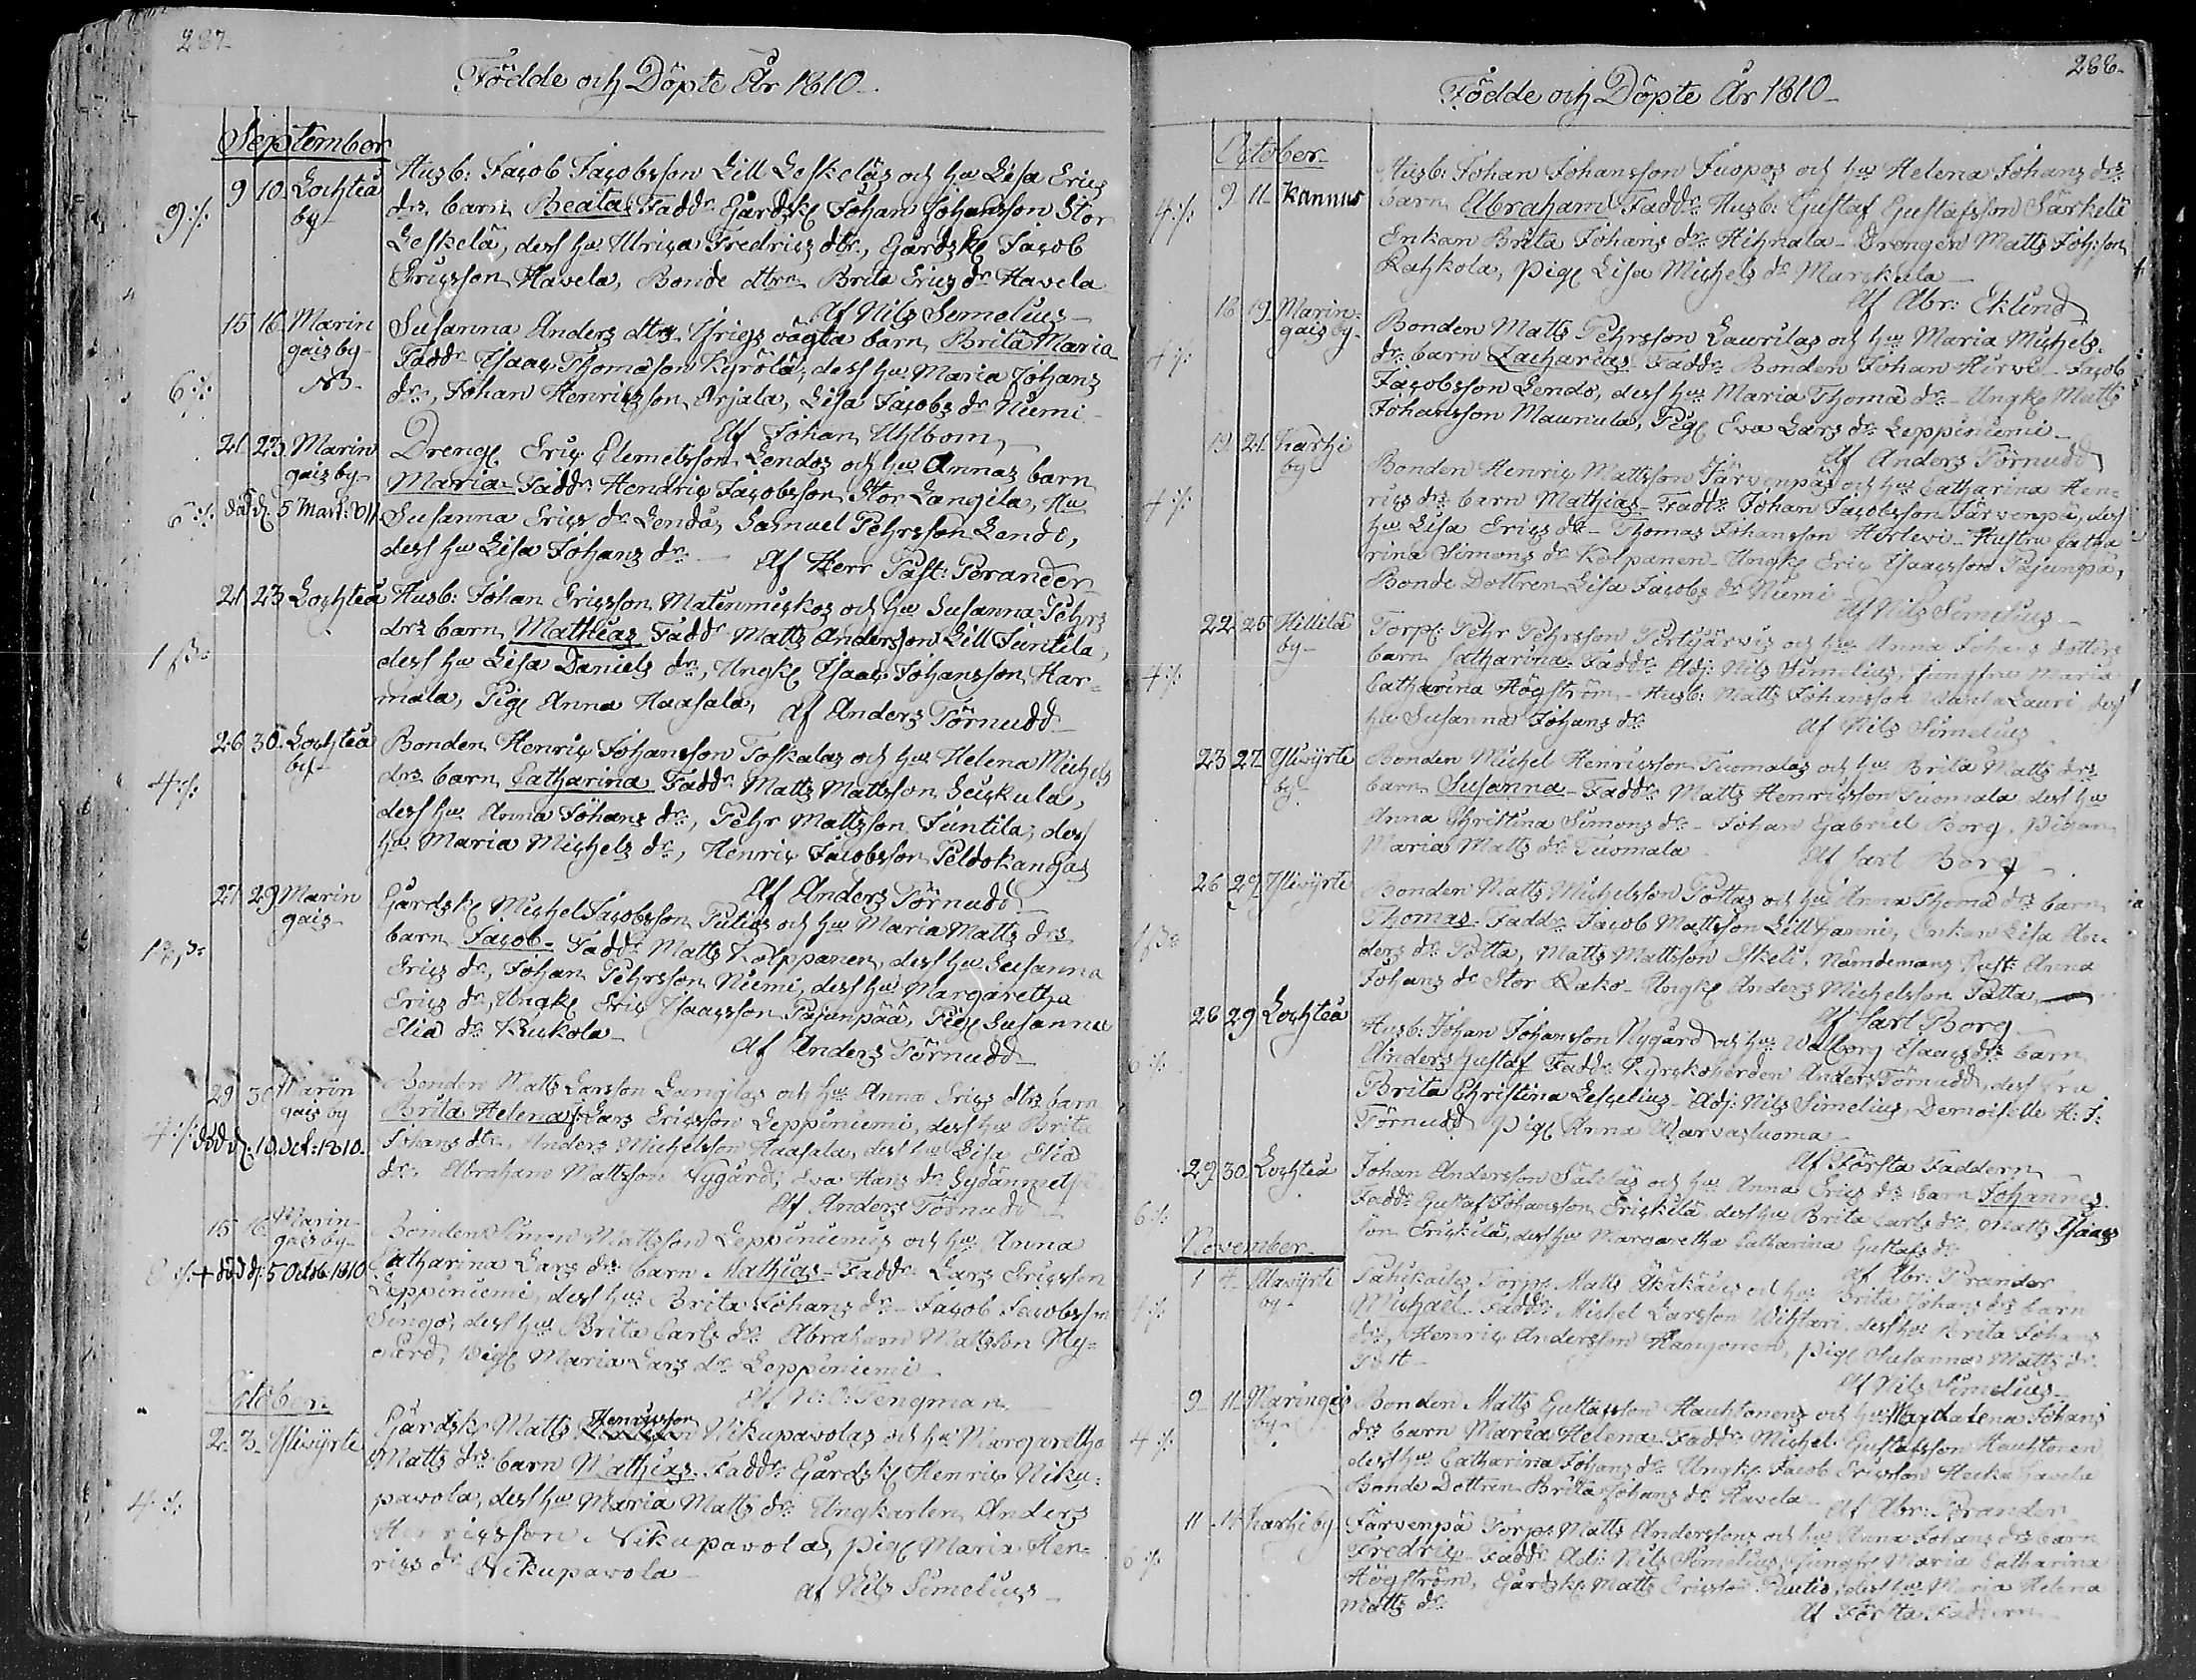 287
Födde och Döpte År 1810
September
9 10 Lochteå by
Husb: Jacob Jacobsson Lill Leskeläs och hu Lisa Erics
9 ./.
drs barn Beata Faddr Gårdsk Johan Johansson Stor
Leskelä, dess hu Ulrica Fredrics dtr, Gårdsk Jacob
Ericsson Havela, Bonde dtrn Brita Erics dr Havela
Af Nils Simelius
15 16 Marin gais by NB
Susanna Anders dtrs Yfrigs oägta barn Brita Maria
6 ./.
Faddr Isaac Thomasson Kyrölä, dess hu Maria Johans
dr, Johan Henricsson Orjala, Lisa Jacobs dr Niemi
Af Johan Uhlbom
21 23 Marin gais by
Dreng Eric Clemetsson Lendos och hu Annas barn
Maria Faddr Hendric Jacobsson Stor Langila, Hu
6 ./. död d. 5 Mart: 811
Susanna Erics dr Lendo, Samuel Pehrsson Lende,
dess hu Lisa Johans dr Af Herr Past: Peranders
21 23 Lochteå
Husb: Johan Ericsson Matinmickos och hu Susanna Pehrs
drs barn Matthias Faddr Matts Andersson Lill Juntila,
dess hu Lisa Daniels dr, Ungk Isaac Johansson Har=
mala, Pig Anna Haasala, Af Anders Törnudd
26 30 Lochteå by
Bonden Henric Johansson Toskalas och hu Helena Michels
4 ./.
drs barn Catharina Faddr Matts Mattsson Leuckula,
dess hu Anna Johans dr, Pehr Mattsson Juntila, dess
hu Maria Michels dr, Henric Jacobsson Peldokangas
Af Anders Törnudd
27 29 Marin gais
Gårdsk Michel Jacobsson Putios och hu Maria Matts drs
barn Jacob Faddr Matts Kolppanen, dess hu Susanna
Erics dr, Johan Pehrsson Niemi, dess hu Margaretha
Erics dr, Ungk Eric Isaacsson Pajunpää, Pig Susanna
Elia dr Kukola
Af Anders Törnudd
29 30 Marin gais by
Bonden Matts Larsson Langilas och hu Anna Erics dtrs barn
Brita Helena F: Lars Ericsson Leppiniemi, dess hu Brita
4 ./. död d. 10 Oct: 1810
Johans dtr, Anders Michelsson Haasala, dess hu Lisa Elia
dr, Abraham Mattsson Nygård, Eva Hans dr
Af Anders Törnudd
15 16 Marin gais by
Bonden Simon Mattsson Leppiniemis och hu Anna
död d. 5 Octob 1810
Catharina Lars drs barn Mathias Faddr Lars Ericsson
Leppiniemi, dess hu Brita Johans dr Jacob Jacobsson
Singo, dess hu Brita Carls dr Abraham Mattsson Ny=
gård, Pig Maria Lars dr Leppiniemi
Af N: O: Tengman
October
2 3 Yliwijrte
Gårdsk Matts Henricsson Nikupavolas och hu Margaretha
Matts drs barn Mathias Faddr Gårdsk Henric Niku=
4 ./.
pavola, dess hu Maria Matts dr Ungkarlen Anders
Henricsson Nikupavola, pig Maria Hen=
rics dr Nikupavola
af Nils Simelius
288
Födde och Döpte År 1810
October
9 11 Kannus
Husb: Johan Johansson Juopos och hu Helena Johans drs
4 ./.
barn Abraham Faddr Husb: Gustaf Gustafsson Särkelä
Enkan Brita Johans dr Hihnala Drengen Matts Johsson
Rahkola, pig Lisa Michels dr Marckula
Af Abr: Eklund
18 19 Marin gais by
Bonden Matts Pehrsson Laurilas och hu Maria Michels
4 ./.
drs barn Zacharias Faddr Bonden Johan Hirwe Jacob
Jacobsson Lendo, dess hu Maria Thoma dr Ungk Matts
Johansson Maunula, Pig Eva Lars dr Leppiniemi
Af Anders Törnudd
19 21 Karhi by
Bonden Henric Mattsson Järvenpäs och hu Catharina Hen=
4 ./.
rics drs barn Mathias Faddr Johan Jacobsson Järvenpä, dess
hu Lisa Erics dr Thomas Johansson Herlevi Hustru Catha
rina Simons dr Kolpanen Ungk Eric Isaacsson Pajunpä,
Bonde Dottren Lisa Jacobs dr Niemi
Af Nils Simelius
22 25 Hillilä by
Torp: Pehr Pehrsson Pertijärwis och hu Anna Johans dotters
4 ./.
barn Catharina Faddr Adj: Nils Simelius, jungfru Maria
Catharina Högström Husb: Matts Johansson Wanha Lauri, dess
hu Susanna Johans dr
af Nils Simelius
23 27 Yliwijrte by
Bonden Michel Henricsson Tuomalas och hu Brita Matts drs
barn Susanna Faddr Matts Henricsson Tuomala, dess hu
Anna Christina Simons dr Johan Gabriel Borg, Pigan
Maria Matts dr Tuomala Af Carl Borg
26 29 Yliwijrte
Bonden Matts Michelsson Pottas och hu Anna Thoma drs barn
Thomas Faddr Jacob Mattsson Lill Janni, Enkan Lisa An=
ders dr Potta, Matts Mattsson Eskeli, Nämdemans Hust: Anna
Johans dr Stor Rako Ungk Anders Michelsson Potta
Af Carl Borg
28 29 Lochteå
Husb: Johan Johansson Nygård och hu Walborg Isaacs drs barn
6 ./.
Anders Gustaf Faddr Kyrckoherden Anders Törnudd, dess Fru
Brita Christina Lescelius Adj: Nils Simelius, Demoiselle H: J:
Törnudd Pig Anna Warvasluoma
Af Första Faddern
29 30 Lochteå
Johan Andersson Sätiläs och hu Anna Erics drs barn Johannes
6 ./.
Faddr Gustaf Johansson Erickilä, dess hu Brita Carls dr, Matts Isaacs
son Erickilä, dess hu Margaretha Catharina Gustafs dr
Af Abr: Prander
November
1 4 Alawijrte by
Torp: Matts och hu Brita Johans drs barn
4 ./.
Michael Faddr Michel Larsson Wihtari, dess hu Brita Johans
dr, Henric Andersson Hangonen, pig Susanna Matts dr
Af Nils Simelius
9 11 Maringais by
Bonden Matts Gustafsson Hauhtonens och hu Magdalena Johans
4 ./.
drs barn Maria Helena Faddr Michel Gustafsson Hauhtonen
dess hu Catharina Johans dr Ungk Jacob Ericsson Heickihavela
Bonde Dottren Brita Johans dr Havela Af Abr: Prander
11 14 Karhi by
Järvenpä Torp: Matts Anderssons och hu Anna Johans drs barn
6 ./.
Fredric Faddr Adj: Nils Simelius, Jungfr Maria Catharina
Högström, Gårdsk Matts Ericsson Puutio, dess hu Maria Helena
Matts dr
af Första Faddern